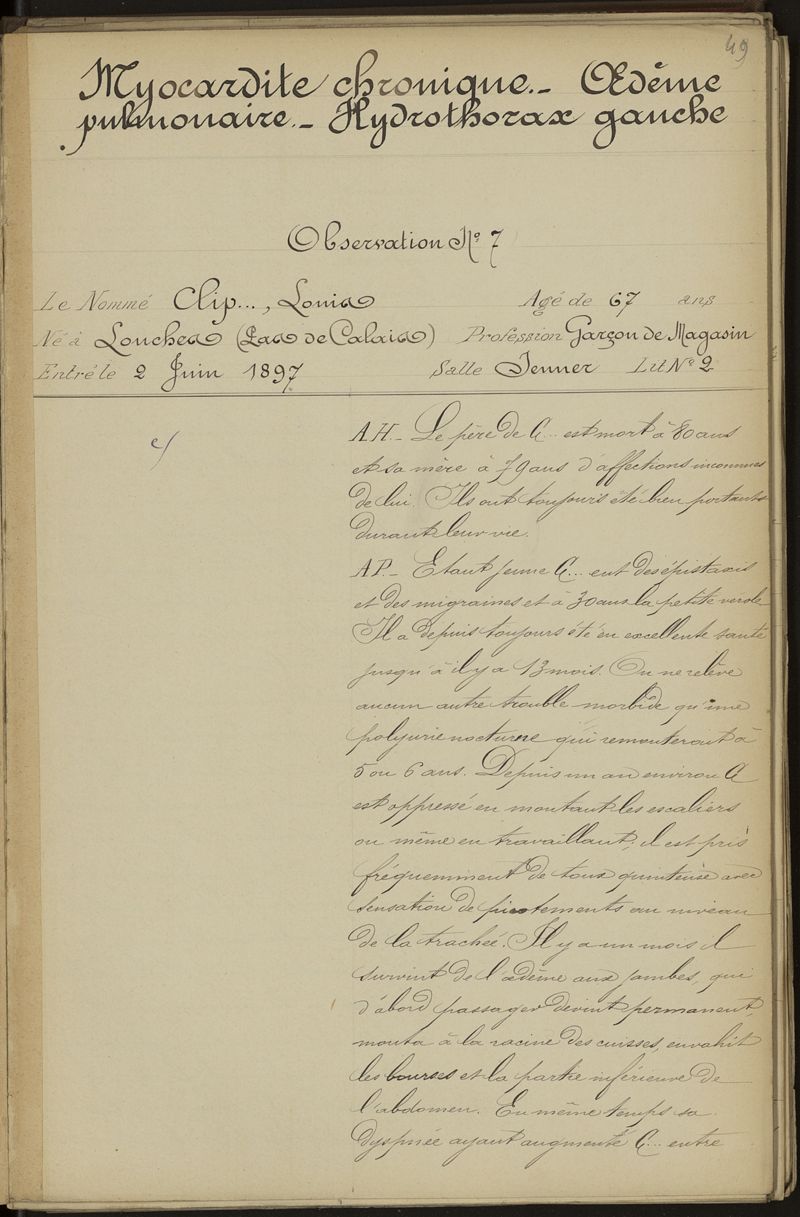 49
Myocardite chronique._ Œdême
pulmonaire._ Hydrothorax gauche
Observation No 7
Le Nommé Clip..., Louis Agé de 67 ans
Né à Louches (Pas de Calais) Profession Garçon de Magasin
Entré le 2 Juin 1897 Salle Jenner Lit No 2
A H._ Le père de C... est mort à 80 ans
et sa mère à 79 ans d'affections inconnues
de lui. Ils ont toujours été bien portants
durant leur vie.
A P._ Etant jeune C... eut des épistaxis
et des migraines et à 30 ans la petite verole_
Il a depuis toujours été en excellente santé
jusqu'à il y a 13 mois. On ne relève
aucun autre trouble morbide qu'une
polyurie nocturne qui remonterait à
5 ou 6 ans. Depuis un an environ C
est oppressé en montant les escaliers
ou même en travaillant; il est pris
fréquemment de toux quinteuse avec
sensation de picotements au niveau
de la trachée. Il y a un mois il
survint de l'œdème aux jambes, qui
d'abord passager devint permanent,
monta à la racine des cuisses, envahit
les bourses et la partie inférieure de
l'abdomen. En même temps sa
dyspnée ayant augmenté C... entre